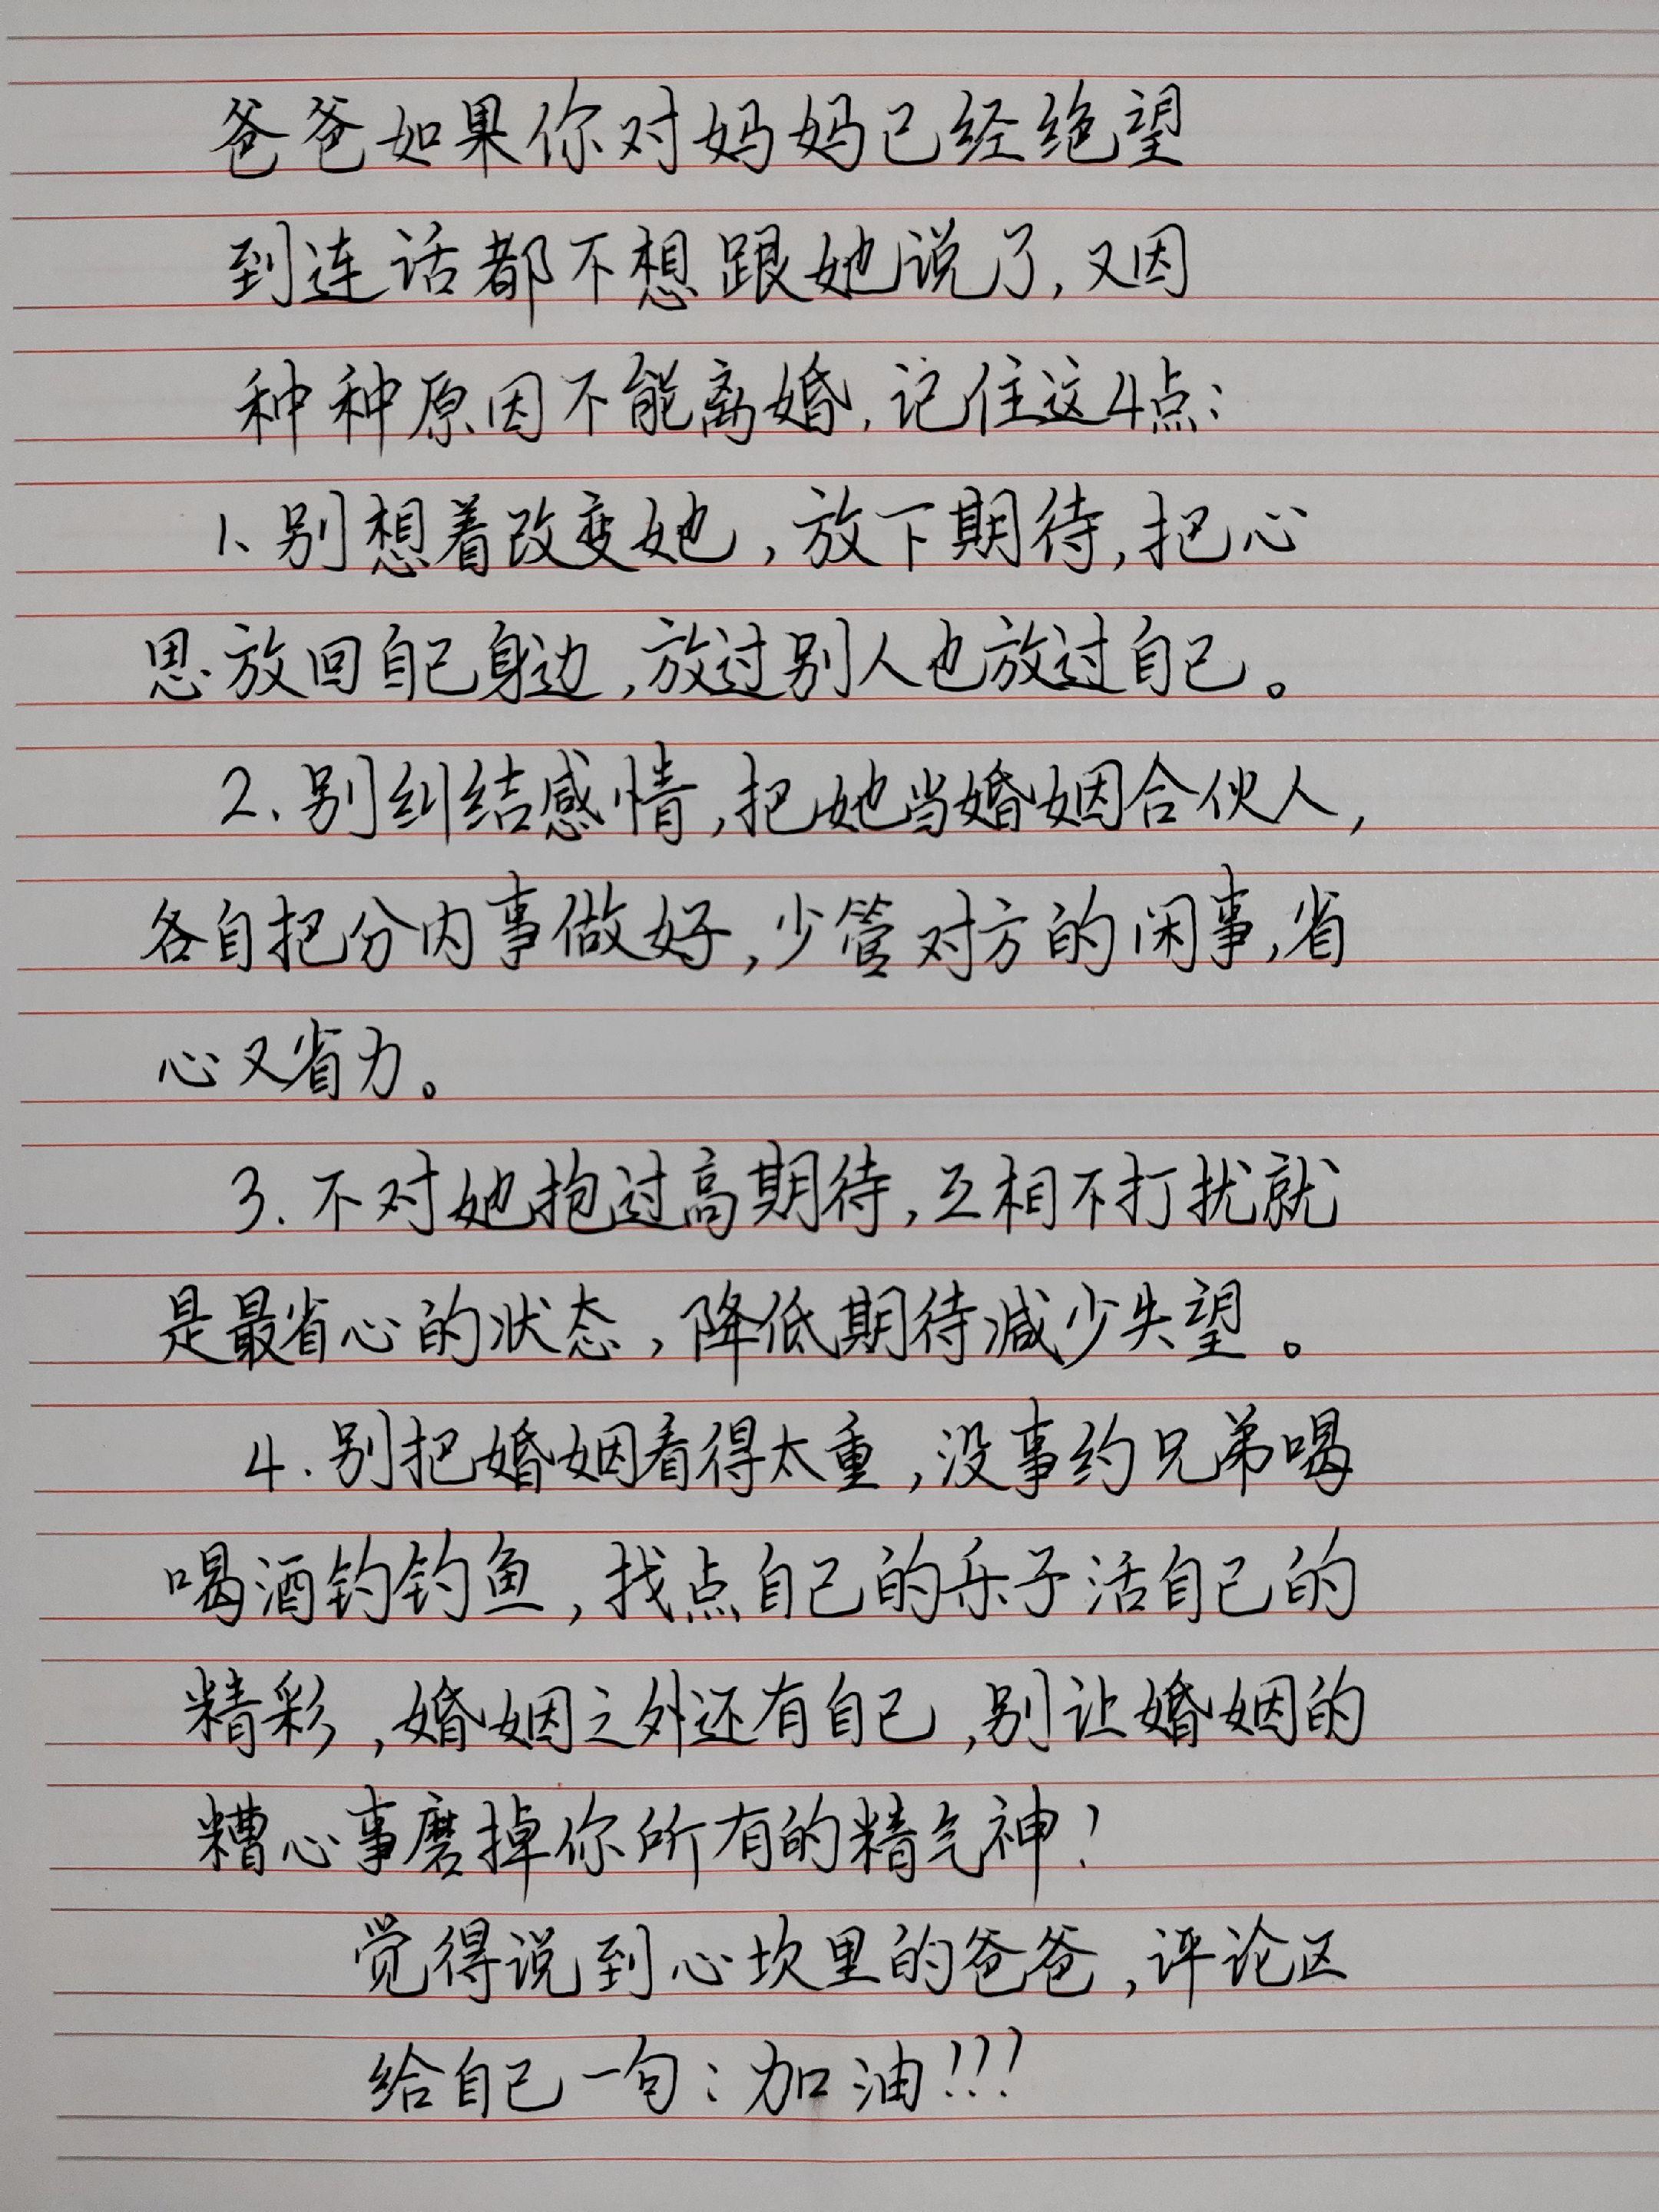 爸爸如果你对妈妈已经绝望
到连话都不想跟她说了，又因
种种原因不能离婚，记住这4点：
1、别想着改变她，放下期待，把心
思放回自己身边，放过别人也放过自己。
2.别纠结感情，把她当婚姻合伙人，
各自把分内事做好，少管对方的闲事，省
心又省力。
3.不对她抱过高期待，互相不打扰就
是最省心的状态，降低期待减少失望。
4.别把婚姻看得太重，没事约兄弟喝
喝酒钓钓鱼，找点自己的乐子活自己的
精彩，婚姻之外还有自己，别让婚姻的
糟心事磨掉你所有的精气神！
觉得说到心坎里的爸爸，评论区
给自己一句：加油！！！